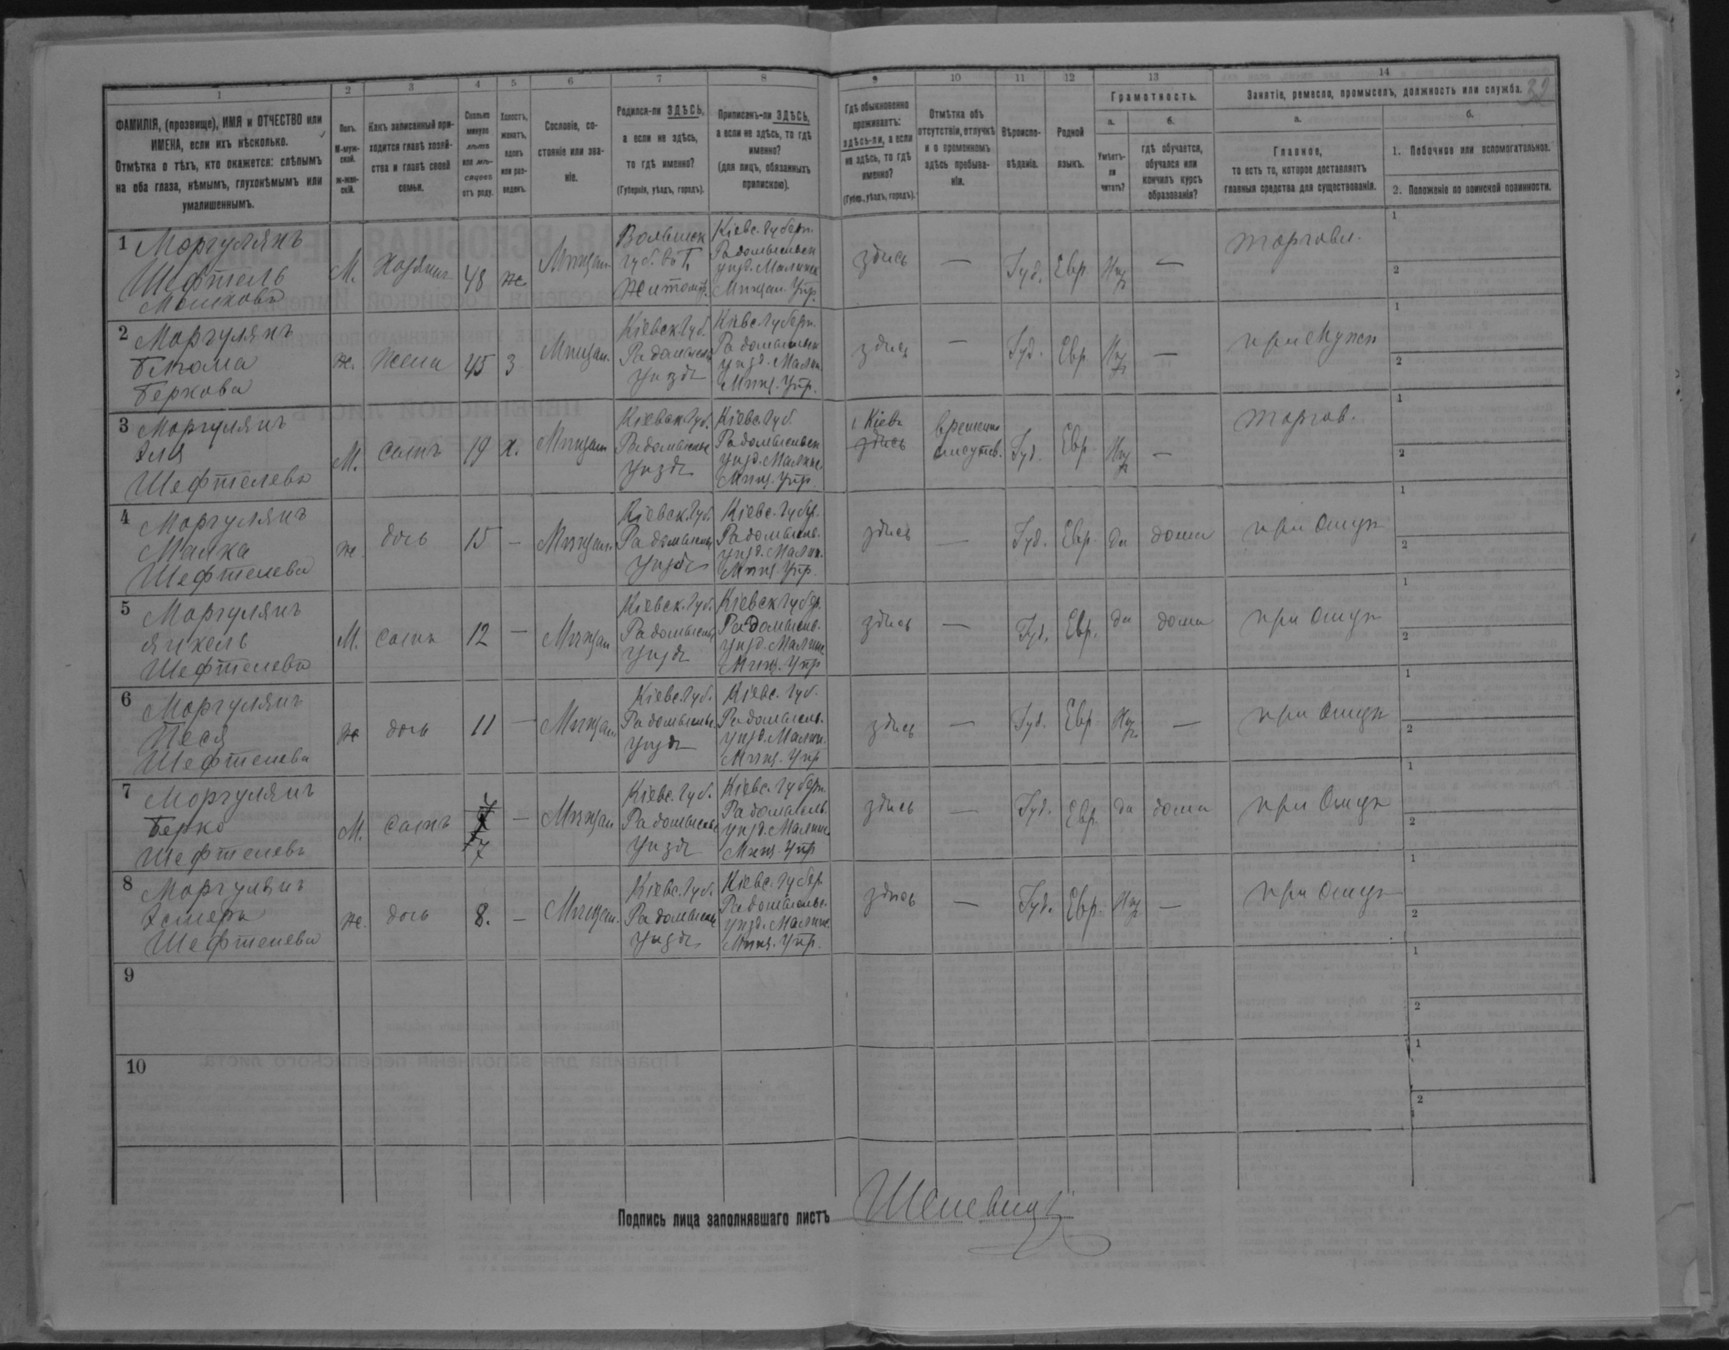 1 2 3 4 5 6 7 8 9 10 11 12 13 14
32
ФАМИЛІЯ, (прозвище), ИМЯ и ОТЧЕСТВО или
ИМЕНА, если ихъ нѣсколько.
Отмѣтка о тѣхъ, кто окажется: слѣпымъ
на оба глаза, нѣмымъ, глухонѣмымъ или
умалишеннымъ.
Полъ.
М-муж-
ской.
ж-жен-
скій.
Какъ записанный при-
ходится главѣ хозяй-
ства и главѣ своей
семьи.
Сколько
минуло
лѣтъ
или мѣ-
сяцевъ
отъ роду.
Холостъ,
женатъ,
вдовъ
или раз-
веденъ.
Сословіе, со-
стояніе или зва-
ніе.
Родился-ли ЗДѢСЬ,
а если не здѣсь,
то гдѣ именно?
(Губернія, уѣздъ, городъ).
Приписанъ-ли ЗДѢСЬ,
а если не здѣсь, то гдѣ
именно?
(для лицъ, обязанныхъ
припискою).
Гдѣ обыкновенно
проживаетъ:
здѣсь-ли, а если
не здѣсь, то гдѣ
именно?
(Губер., уѣздъ, городъ).
Отмѣтка объ
отсутствіи, отлучкѣ
и о временномъ
здѣсь пребыва-
ніи.
Вѣроиспо-
вѣданіе.
Родной
языкъ.
Грамотность.
а.
Умѣетъ-
ли
читать?
б.
гдѣ обучается,
обучался или
кончилъ курсъ
образованія?
Занятіе, ремесло, промыселъ, должность или служба.
а.
Главное,
то есть то, которое доставляетъ
главныя средства для существованія.
б.
1. Побочное или вспомогательное.
2. Положеніе по воинской повинности.
1 Маргулянъ
Шефтель
Мошковъ
М.
Хозяинъ
48
ж
Мѣщан.
Волынск
губ. въ Г.
Житомір.
Кіевс. Губерн.
Радомысльск
уѣзд. Малинск
Мѣщан. Упр.
здѣсь
—
Іуд.
Евр.
Нѣт
—
торговл.
1
2
2 Маргулянъ
Беркова
ж.
жена
45
з
Мѣщан.
Кіевск. Губ.
Радомысль
Уѣздѣ
Кіевс. Губерн.
Радомысльск
уѣзд. Малин.
Мѣщ. Упр.
здѣсь
—
Іуд.
Евр.
Нѣт
—
при мужѣ
1
2
3 Маргулянъ
Эля
Шефтелевъ
М.
сынъ
19
х.
Мѣщан
Кіевск. Губ.
Радомысльс
Уѣздѣ
Кіевс. Губ.
Радомысльск
уѣзд. Малинс.
Мѣщ. Упр.
Кіевъ
здѣсь
временно
отсутств.
Іуд.
Евр.
Нѣт
—
торгов.
1
2
4 Маргулянъ
Малка
Шефтелева
ж.
дочь
15
—
Мѣщан.
Кіевск. Губ.
Радомысльс
Уѣздѣ
Кіевс. Губер.
Радомысль.
уѣзд. Малин.
Мѣщ. Упр.
здѣсь
—
Іуд.
Евр.
да
дома
при отцѣ
1
2
5 Маргулянъ
Янкель
Шефтелевъ
М.
сынъ
12
—
Мѣщан
Кіевск. Губ.
Радомысльс
Уѣздѣ
Кіевск Губер.
Радомысль.
уѣзд. Малинс
Мѣщ. Упр
здѣсь
—
Іуд.
Евр.
да
дома
при отцѣ
1
2
6 Маргулянъ
Песя
Шефтелева
ж
дочь
11
—
Мѣщан
Кіевс. Губ.
Радомысльс
Уѣздѣ
Кіевс. Губ.
Радомысль.
уѣзд. Малин.
Мѣщ. Упр
здѣсь
—
Іуд.
Евр.
Нѣт
—
при отцѣ
1
2
7 Маргулянъ
Берко
Шефтелевъ
М.
сынъ
—
Мѣщан
Кіевс. Губ.
Радомысльс
Уѣздѣ
Кіевс. Губерн.
Радомысль.
уѣзд. Малинс
Мѣщ. Упр
здѣсь
—
Іуд.
Евр.
да
дома
при отцѣ
1
2
8 Маргулянъ
Шефтелева
ж.
дочь
8.
—
Мѣщан.
Кіевс. Губ.
Радомысльс
Уѣздѣ
Кіевс. Губер.
Радомысль.
уѣзд. Малинс
Мѣщ. Упр.
здѣсь
—
Іуд.
Евр.
Нѣт
—
при отцѣ
1
2
9
1
2
10
1
2
Подпись лица заполнявшаго листъ